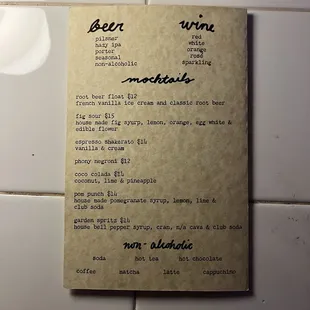 beer wine
pilsner red
hazy ipa white
porter orange
seasonal rosé
non-alcoholic sparkling
mocktails
root beer float $12
french vanilla ice cream and classic root beer
fig sour $15
house made fig syurp, lemon, orange, egg white &
edible flower
espresso shakerato $14
vanilla & cream
phony negroni $12
coco colada $14
coconut, lime & pineapple
pom punch $14
house made pomegranate syrup, lemon, lime &
club soda
garden spritz $14
house bell pepper syrup, cran, n/a cava & club soda
non-alcoholic
soda hot tea hot chocolate
coffee matcha latte cappuchino